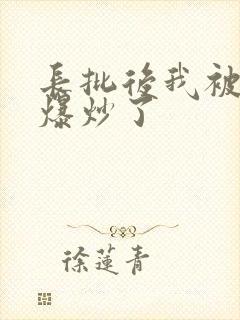 長批後我被
爆炒了
徐蓮青